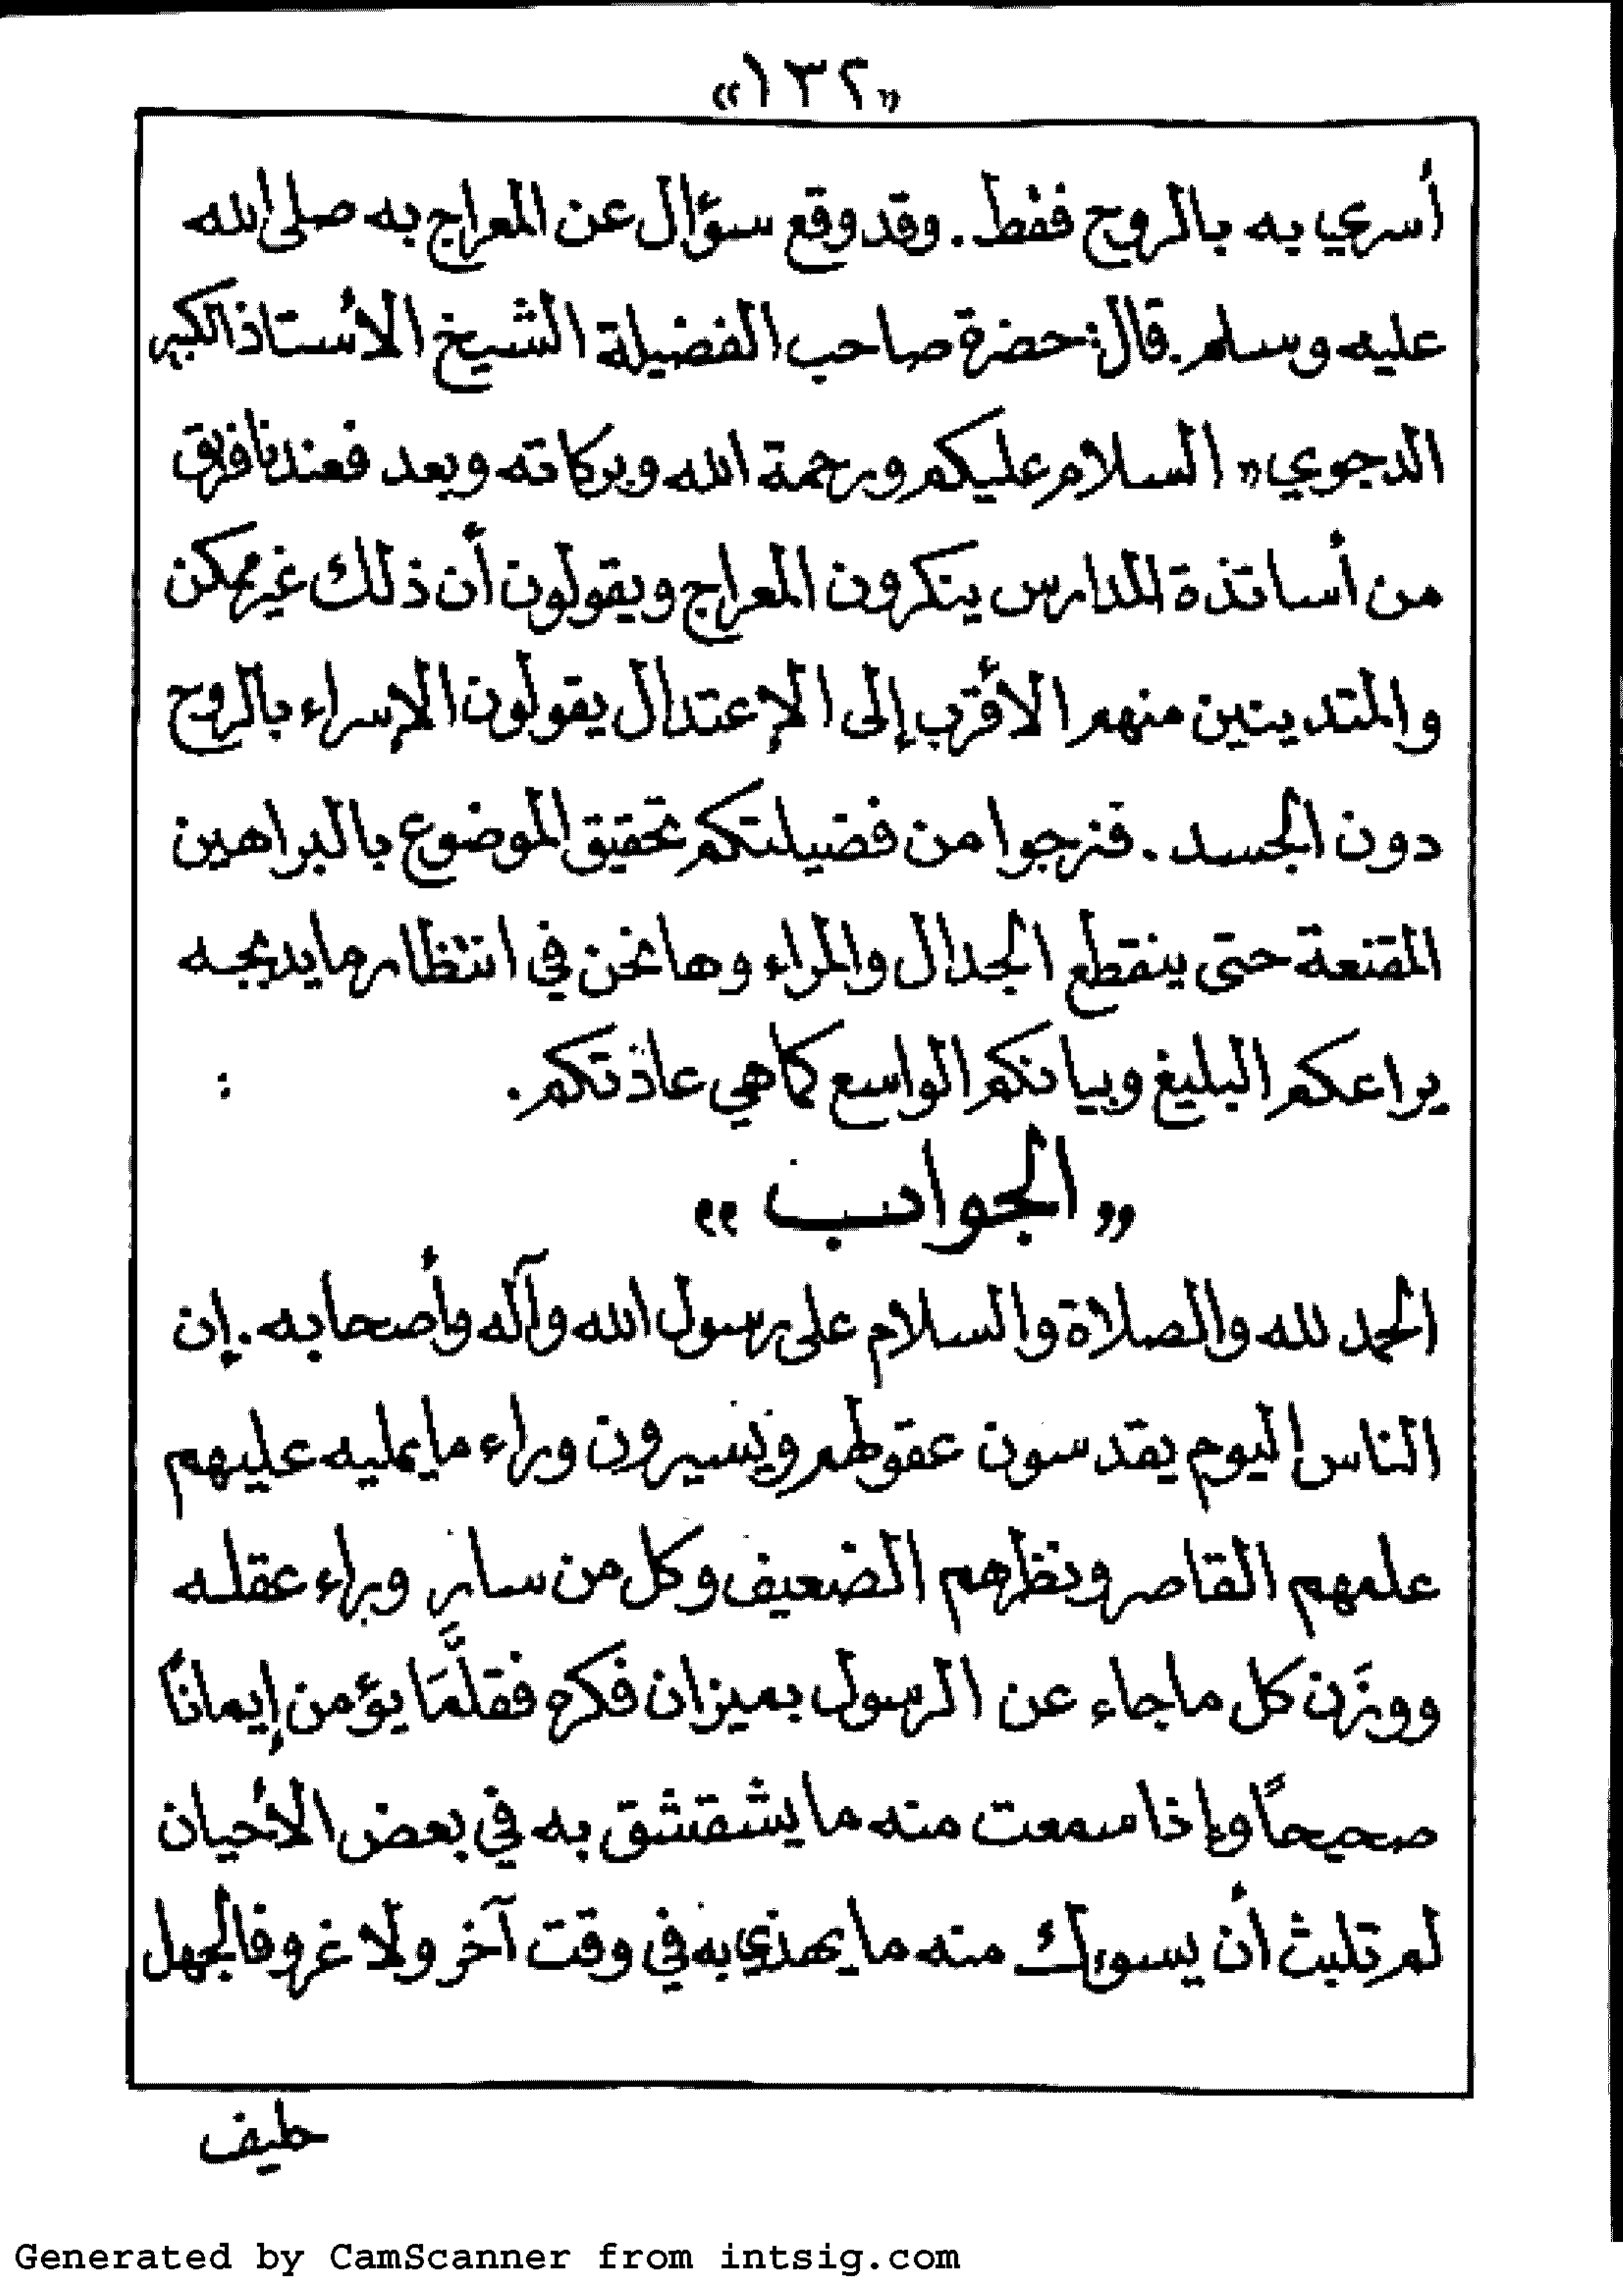 «١٣٢»
أسري به بالروح فقط. وقد وقع سؤال عن المعراج به صلى الله
عليه وسلم. قال: حضرة صاحب الفضيلة الشيخ الأستاذ الكبير
الدجوي« السلام عليكم ورحمة الله وبركاته وبعد فعندنا فريق
من أساتذة المدارس ينكرون المعراج ويقولون أن ذلك غير ممكن
والمتدينين منهم الأقرب إلى الإعتدال يقولون الإسراء بالروح
دون الجسد. فنرجوا من فضيلتكم تحقيق الموضوع بالبراهين
المقنعة حتى ينقطع الجدال والمراء وها نحن في انتظار ما يدبجه
يراعكم البليغ وبيانكم الواسع كما هي عاذتكم. :
«الجواب»
الحمد لله والصلاة والسلام على رسول الله وآله وأصحابه. إن
الناس اليوم يقدسون عقولهم ويسيرون وراء ما يمليه عليهم
علمهم القاصر ونظرهم الضعيف وكل من سار وراء عقله
ووزن كل ما جاء عن الرسول بميزان فكره فقلَّمَا يؤمن إيمانًا
صحيحًا وإذا سمعت منه ما يشقشق به في بعض الأحيان
لم تلبث أن يسوءك منه ما يهذي به في وقت آخر ولا غرو فالجهل
حليف
Generated by CamScanner from intsig.com